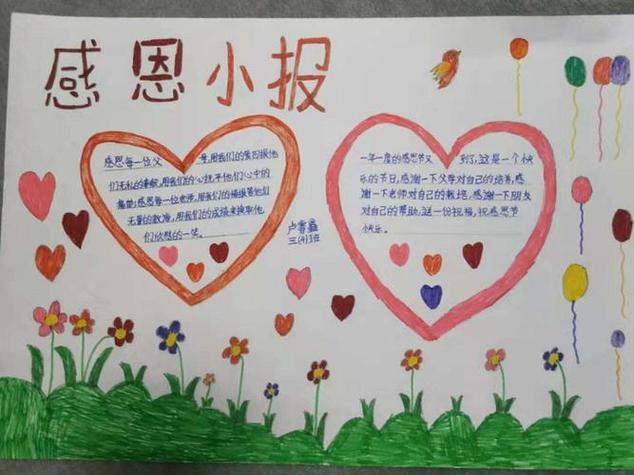 感恩小报
感恩每一位父母,用我们的爱回报他
们无私的奉献,用我们的心抚平他们心中的
每一位老师,用我们的
无量的教海,用我们的成绩来换取他
们欣慰的一笑。
一年一度的感恩节又到了,这是一个快
乐的节日,感谢一下父母对自己的培养,感
谢一下老师对自己的栽培,感谢一下朋友
对自己的帮助,送一份祝福,祝感恩节
快乐。
卢
三(4)班